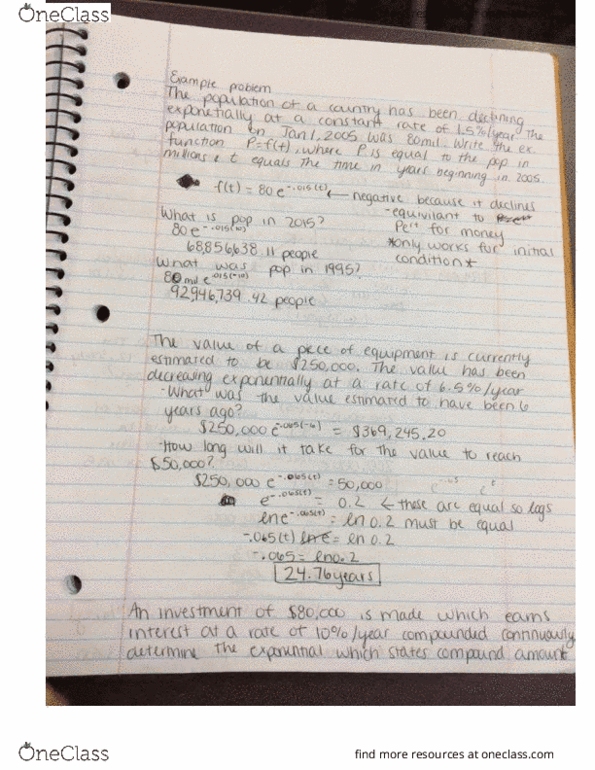 OneClass
Example problem
The population of a country has been declining
exponetially at a constant rate of 1.5%/year. The
population on Jan 1, 2005 was 80mil. Write the ex.
function P=f(t), where P is equal to the pop in
millions & t equals the time in years beginning in 2005.
f(t) = 80 e^-.015(t) ← negative because it declines
-equivilant to
Pe^rt for money
*only works for initial
condition*
What is pop in 2015?
80 e^-.015(10)
68,856,638.11 people
What was pop in 1995?
80 mil e^.015(-10)
92,946,739.42 people
The value of a piece of equipment is currently
estimated to be $250,000. The value has been
decreasing exponentially at a rate of 6.5%/year
-What was the value estimated to have been 6
years ago?
$250,000 e^-.065(-6) = $369,245.20
-How long will it take for the value to reach
$50,000?
$250,000 e^-.065(t) = 50,000
e^-.065(t) = 0.2 ← these are equal so logs
ln e^-.065(t) = ln 0.2 must be equal
-.065(t) ln e = ln 0.2
-.065 = ln 0.2
24.76 years
An investment of $80,000 is made which earns
interest at a rate of 10%/year compounded continuously
determine the exponential which states compound amount
OneClass
find more resources at oneclass.com